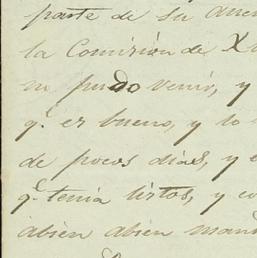 parte de su
la Comision de
no pudo venir, y
q.e es bueno, y lo
de pocos dias, y
q.e tenia listos, y
abien abien